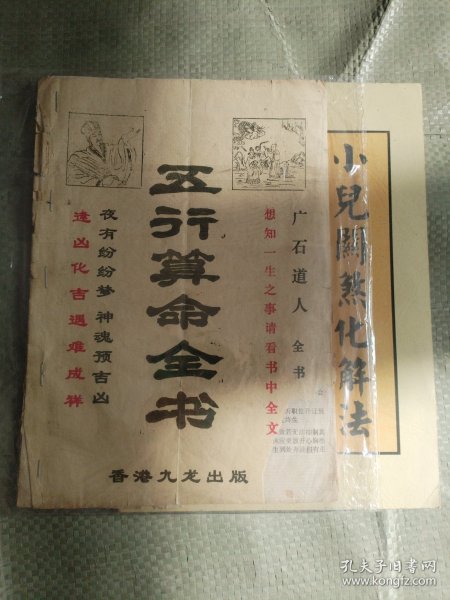 五行算命全书
广石道人 全书
想知一生之事请看书中全文
夜有纷纷梦 神魂预吉凶
逢凶化吉遇难成祥
香港九龙出版
小兒關煞化解法
孔夫子旧书网
www.kongfz.com